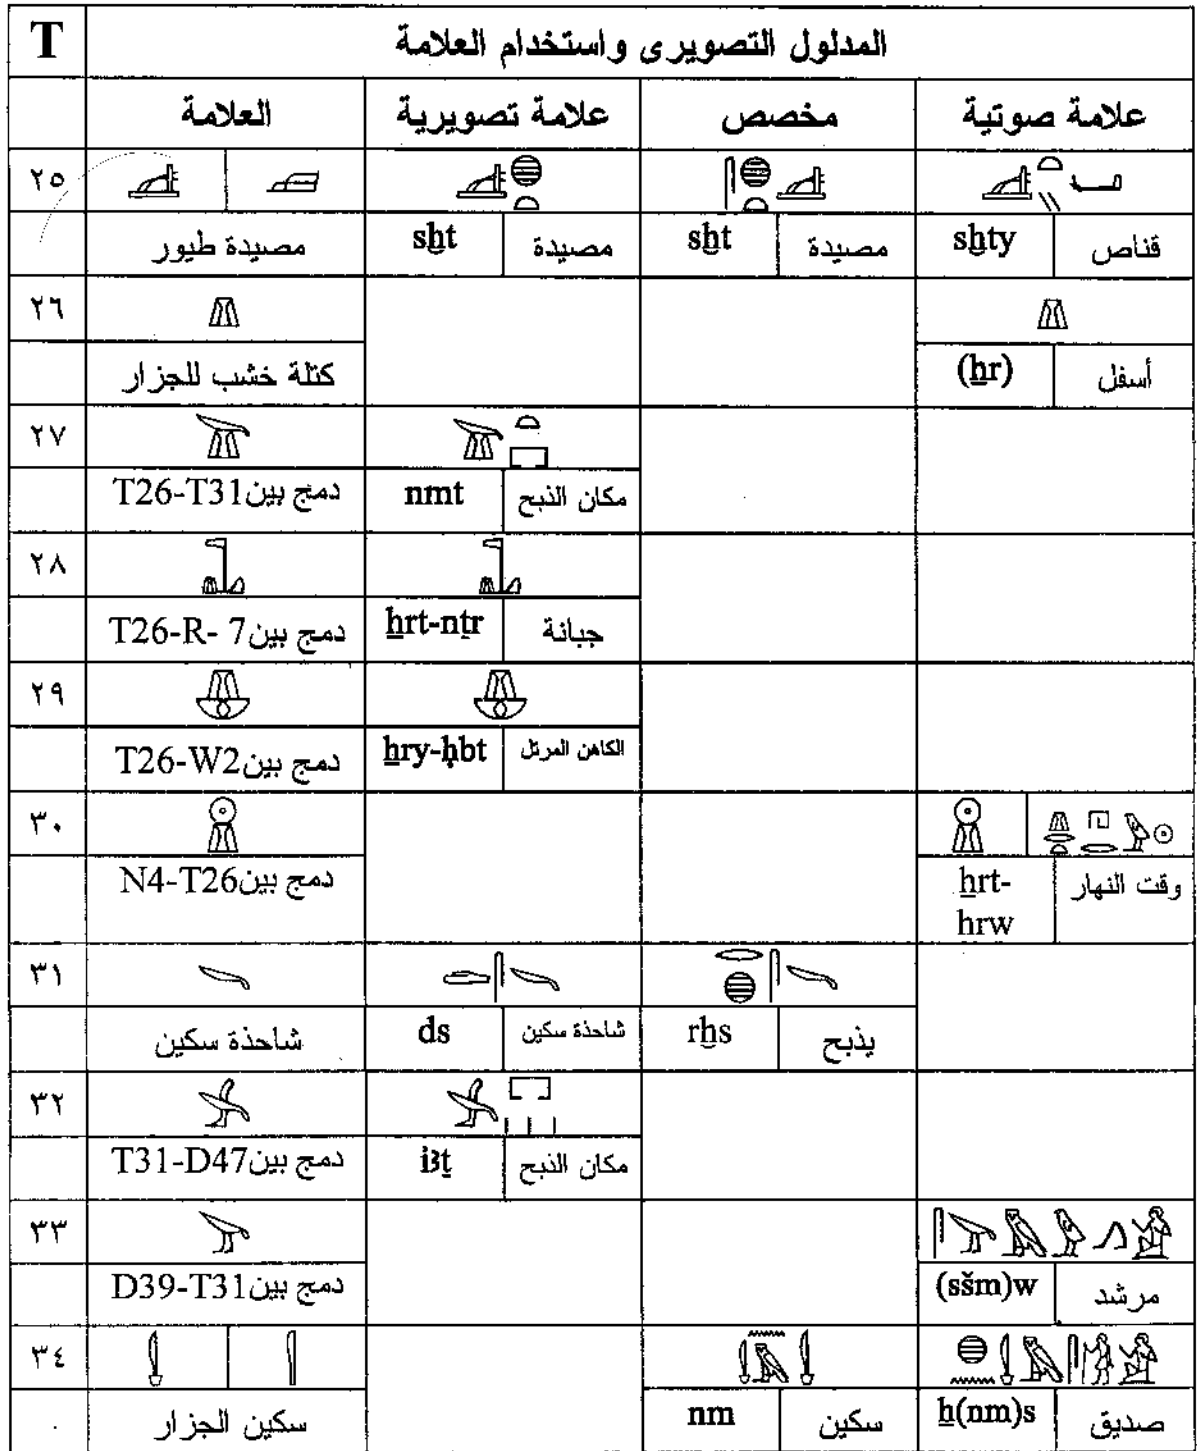 T المدلول التصويرى واستخدام العلامة
العلامة علامة تصويرية مخصص علامة صوتية
٢٥
مصيدة طيور sḫt مصيدة sḫt مصيدة sḫty قناص
٢٦
كتلة خشب للجزار (ẖr) أسفل
٢٧
دمج بين T26-T31 nmt مكان الذبح
٢٨
دمج بين T26-R- 7 ẖrt-nṯr جبانة
٢٩
دمج بين T26-W2 ẖry-ḥbt الكاهن المرتل
٣٠
دمج بين N4-T26 ẖrt-hrw وقت النهار
٣١
شاحذة سكين ds شاحذة سكين rḫs يذبح
٣٢
دمج بين T31-D47 i҆ꜣṯ مكان الذبح
٣٣
دمج بين D39-T31 (sšm)w مرشد
٣٤
سكين الجزار nm سكين ẖ(nm)s صديق